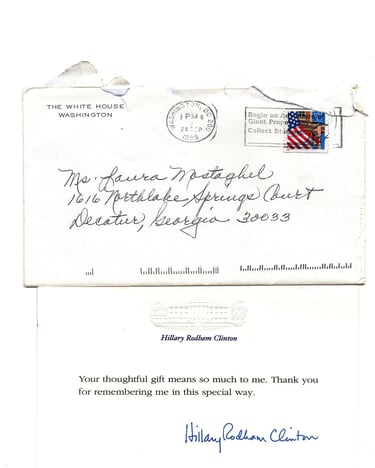 THE WHITE HOUSE
WASHINGTON
WASHINGTON, DC 200
PM
20 SEP
1995
Begin an
Giant
Collect
Ms. Laura Mostaghel
1616 Northlake Springs Court
Decatur, Georgia 30033
Hillary Rodham Clinton
Your thoughtful gift means so much to me. Thank you
for remembering me in this special way.
Hillary Rodham Clinton